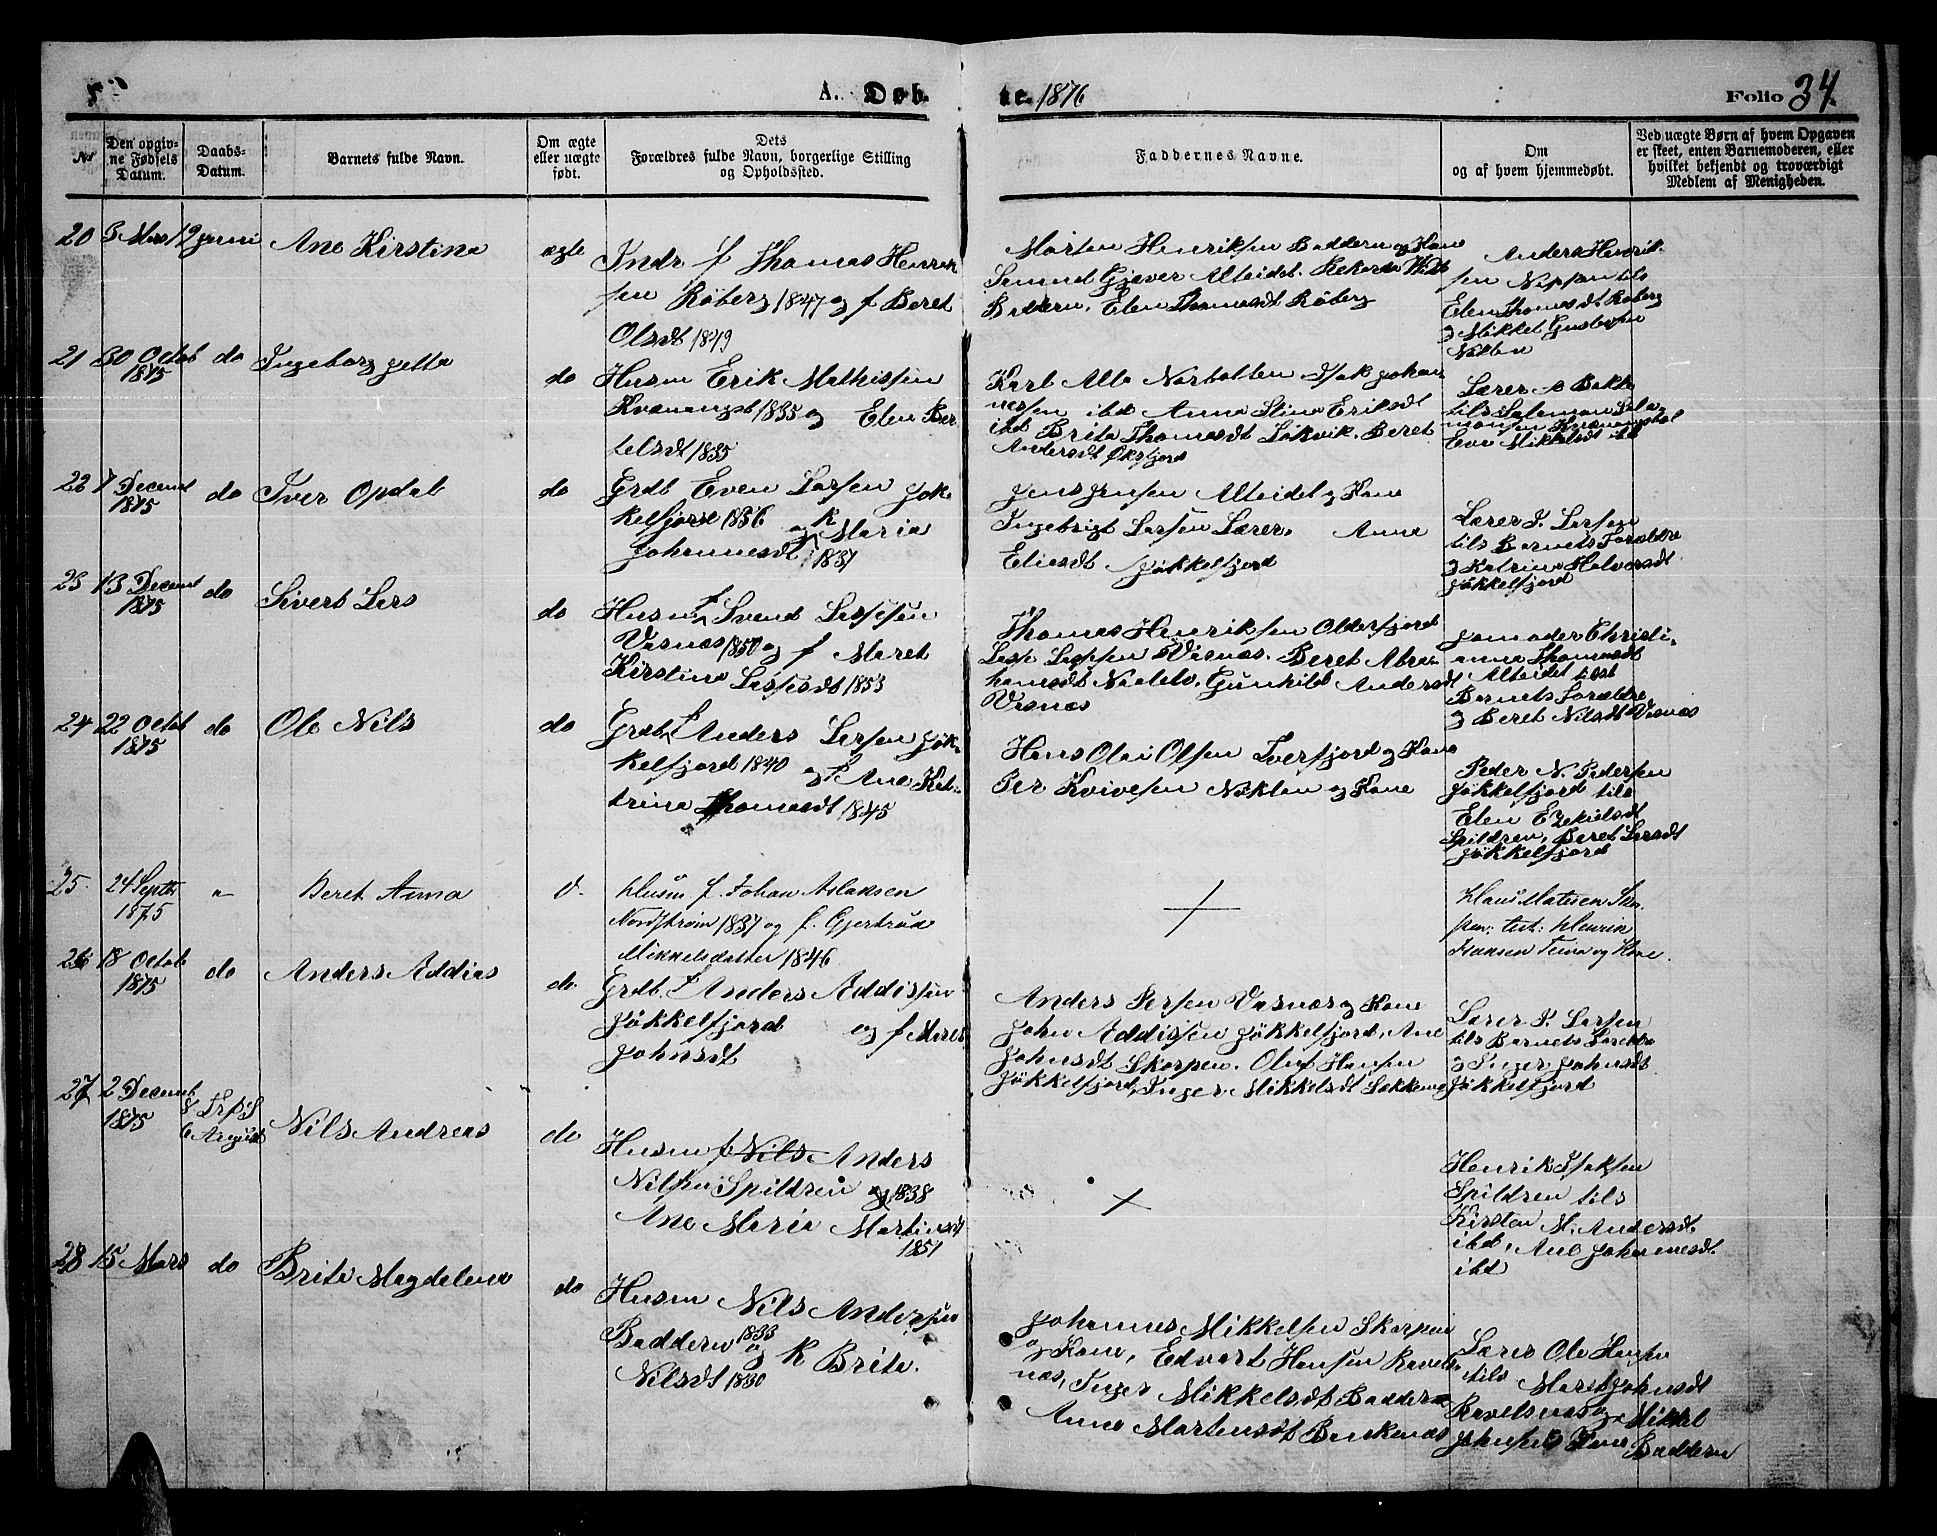 A. Døb-
te. 1876
Folio 34.
No
Den opgiv-
ne Fødsels
Datum.
Daabs-
Datum.
Barnets fulde Navn.
Om ægte
eller uægte
født.
Dets
Forældres fulde Navn, borgerlige Stilling
og Opholdssted.
Faddernes Navne.
Om
og af hvem hjemmedøbt.
Ved uægte Børn af hvem Opgaven
er skeet, enten Barnemoderen, eller
hvilket bekjendt og troværdigt
Medlem af Menigheden.
20 3 Mars 12 juni Ane Kirstina ægte
Indr f Thomas Henrik
sen Røberg 1847 og f Beret
Olsdt 1849
Morten Henriksen Baddern og Kone
Gjæver Alteidet.
Baddern, Elen Thomasdt Røberg
Anders Henrik
sen
Elen Thomasdt Røberg
og Mikkel
21 30 Octob
1875
do Ingeborg jetta do
Husm Erik Mathissen
Kvænangsb 1835 og Elen Ber
telsdt 1835
Karl Alb Norbotten Isak johan
nessen ibd Anna Stina Eriksdt
ibd Brita Thomasdt Løkvik. Beret
Andersdt Øksfjord
Lærer Bakke
tils Salamon Sala-
monsen
Mikkelsdt ibd
22 7 Decemb
1875
do Iver Opdal do
Grdb Even Larsen Jøk
kelfjord 1836 og k Maria
Johannesdt 1837
Jens Jensen Alteidet og Kone
Ingebrigt Larsen Lærer, Anne
Eliasdt Jøkkelfjord
Lærer I. Larsen
tils Barnets Forældre
og Katrina Halvorsdt
Jøkkelfjord
23 13 Decemb
1875
do Sivert Lars do
Husm f Svend
Vasnæs 1850 og f Maret
Kirstina 1853
Thomas Henriksen Olderfjord
Vasnæs. Beret Abra-
hamsdt Gunhild Andersdt
Vasnæs
Jomoder Christi-
anna Thomasdt
Alteidet tilst
Barnets Forældre
og Beret Nilsdt Vasnæs
24 22 Octob
1875
do Ole Nils do
Grdb f Anders Larsen Jøk-
kelfjord 1840 og f Ane Kat-
trina Thomasdt 1845
Hans Olai Olsen Tverfjord og Kone
Per og Kone
Peder N. Pedersen
Jøkkelfjord tils
Elen Ezekielsdt
Spildren, Beret Larsdt
Jøkkelfjord
25. 24 Septbr
1875
" Beret Anna d.
Husm f. Johan Aslaksen
Nordstrøm 1837 og f. Gjertrud
Mikkelsdatter 1846
Klaus Matisen Skor
pen; test: Henrik
Hansen og Kone.
26 18 Octob
1875
do Anders Addias do
Grdb f Anders Addissen
Jøkkelfjord og f Maret
Johnsdt
Anders Persen Vasnæs og Kone
John Addissen Jøkkelfjord, Ane
Johnsdt Skorpen. Oluf Hansen
Jøkkelfjord, Inger Mikkelsdt
Lærer I. Larsen
tils Barnets Foreldre
og Inger Johnsdt
Jøkkelfjord
27 2 Decemb
1875
6 August
Nils Andreas do
Husm f Nils Anders
Nilsen Spildren og 1838
Ane Maria Martinsdt
1851
Henrik Isaksen
Spildren tils
Kirsten M. Andersdt
ibd, Ane Johannesdt
ibd
28 15 Mars do Brita Magdalena do
Husm Nils Andersen
Baddern 1833 og k Brita
Nilsdt 1830
Johannes Mikkelsen Skorpen
og Kone, Edvart Hansen Ravels
næs, Inger Mikkelsdt Baddern
Anne Mortensdt
Lærer Ole
tils Marit Johnsdt
Ravelsnæs og Mikkel
Baddern